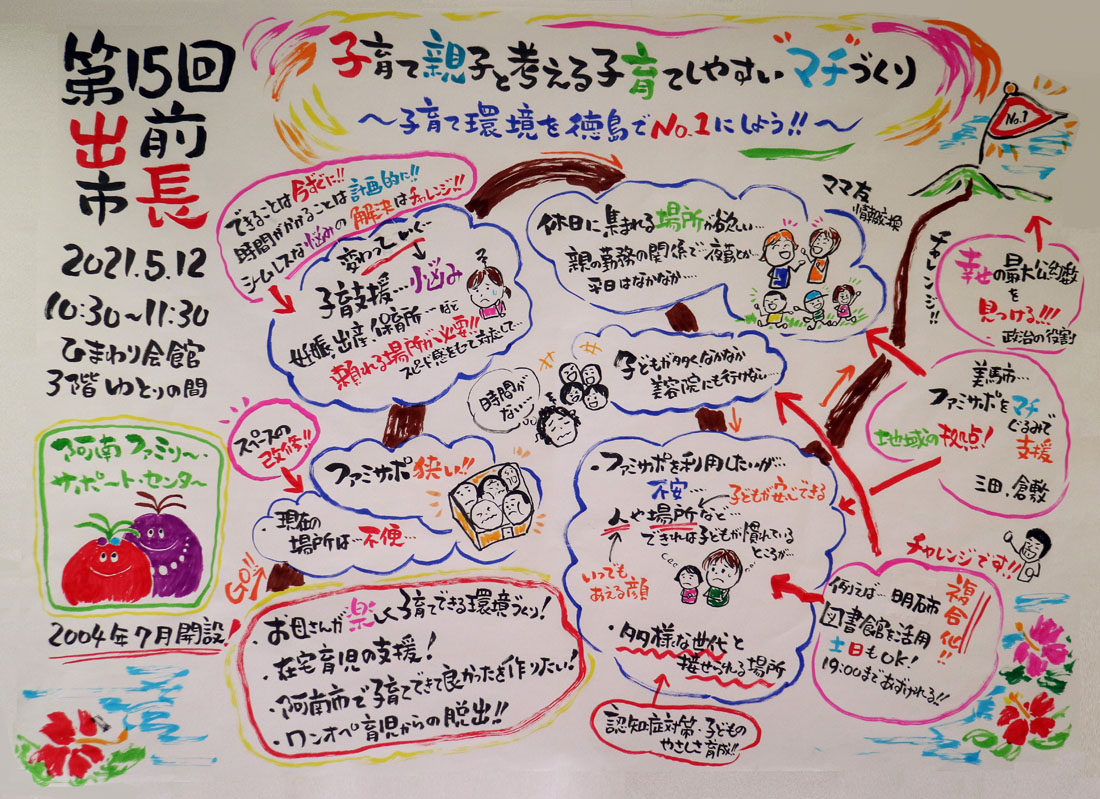 第15回
出前
市長
2021.5.12
10:30～11:30
ひまわり会館
3階 ゆとりの間
阿南ファミリー・
サポート・センター
2004年7月開設!
子育て親子と考える子育てしやすい"マチ"づくり
～子育て環境を徳島でNo.1にしよう!!～
できることは今すぐに!!
時間がかかることは計画的に!!
シームレスな悩みの解決はチャレンジ!!
変わっていく…
子育支援…悩み
妊娠、出産、保育所…など
頼れる場所が必要!!
スピード感をもって対応して…
スペースの
改修!!
ファミサポ狭い!!
現在の
場所は…不便…
GO!!
・お母さんが楽しく子育てできる環境づくり!
・在宅育児の支援!
・阿南市で子育てできて良かったを作りたい!
・ワンオペ育児からの脱出!!
休日に集まれる場所が欲しい…
親の勤務の関係で…夜勤とか…
平日はなかなか…
ママ友
情報交換
時間が
ない…
子どもが多くなかなか
美容院にも行けない…
・ファミサポを利用したいが…
不安…
子どもが安心できる
人や場所など…
できれば子どもが慣れている
ところが…
いつでも
あえる顔
・多様な世代と
接せられる場所
認知症対策・子どもの
やさしさ育成!!
No.1
チャレンジ!!
幸せの最大公約数
を
見つける!!!
政治の役割
美馬市…
ファミサポをマチ
ぐるみで
支援
地域の拠点!
三田、倉敷
チャレンジです!!
複合化!!
例えば…明石市
図書館を活用
土日もOK!
19:00まであずけれる!!